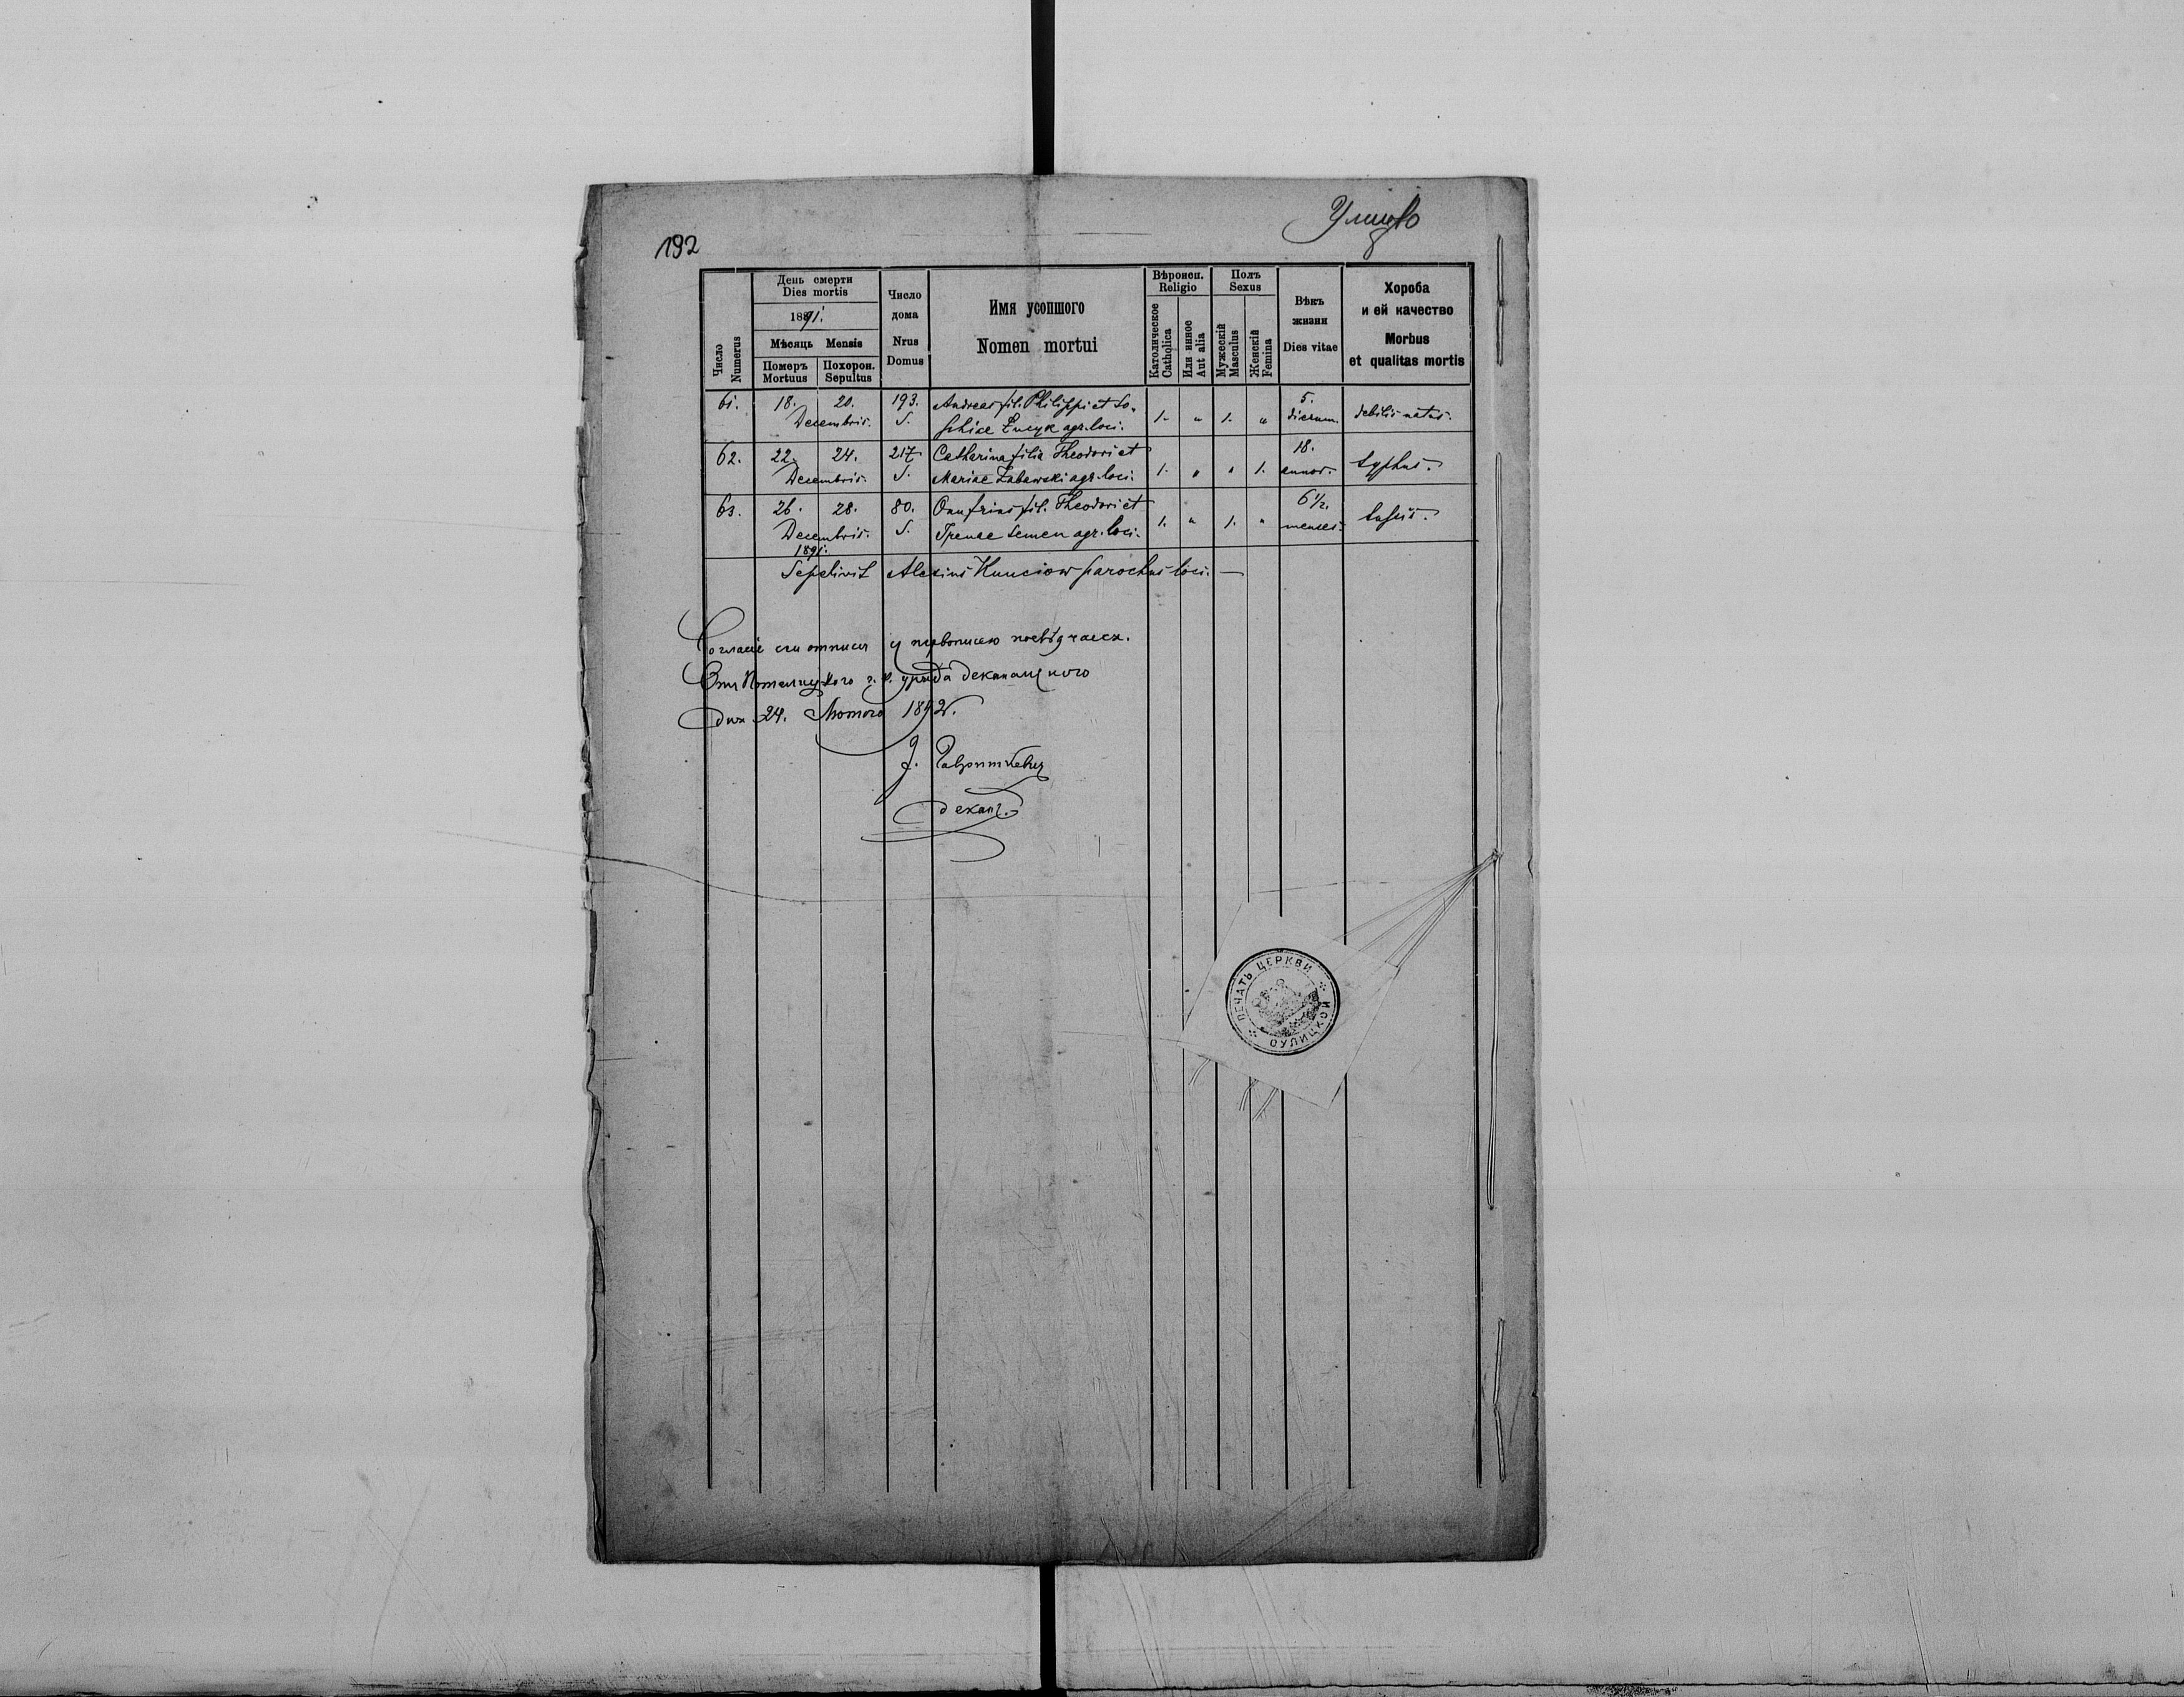 192
Число
Numerus
День смерти
Dies mortis
1891.
Мѣсяць Mensis
Померъ
Mortuus
Похорон.
Sepultus
Число
дома
Nrus
Domus
Имя усопшого
Nomen mortui
Вѣроисп.
Religio
Католическое
Catholica
Или инное
Aut alia
Полъ
Sexus
Мужескій
Masculus
Женскій
Femina
Вѣкъ
жизни
Dies vitae
Хороба
и ей качество
Morbus
et qualitas mortis
61. 18. 20. 193. Andreas fil. Philippi et So- 5.
Decembris. S. phiae agr. loci. 1. " 1. " dierum. debilis natus.
62. 22. 24. 217 Catharina filia Theodori et 18.
Decembris. S. Mariae Zabawski agr. loci. 1. " " 1. annor. typhus.
63. 26. 28. 80. Onufrius fil. Theodori et 6 1/2.
Decembris. S. Irenae Semen agr. loci. 1. " 1. " menses. tussis.
1891.
Sepelivit Alexius Kunciow parochus loci. —
отписи
дня 24. Лютого 1892.
деканъ.
ПЕЧАТЬ ЦЕРКВИ
ОУЛИЦКОИ